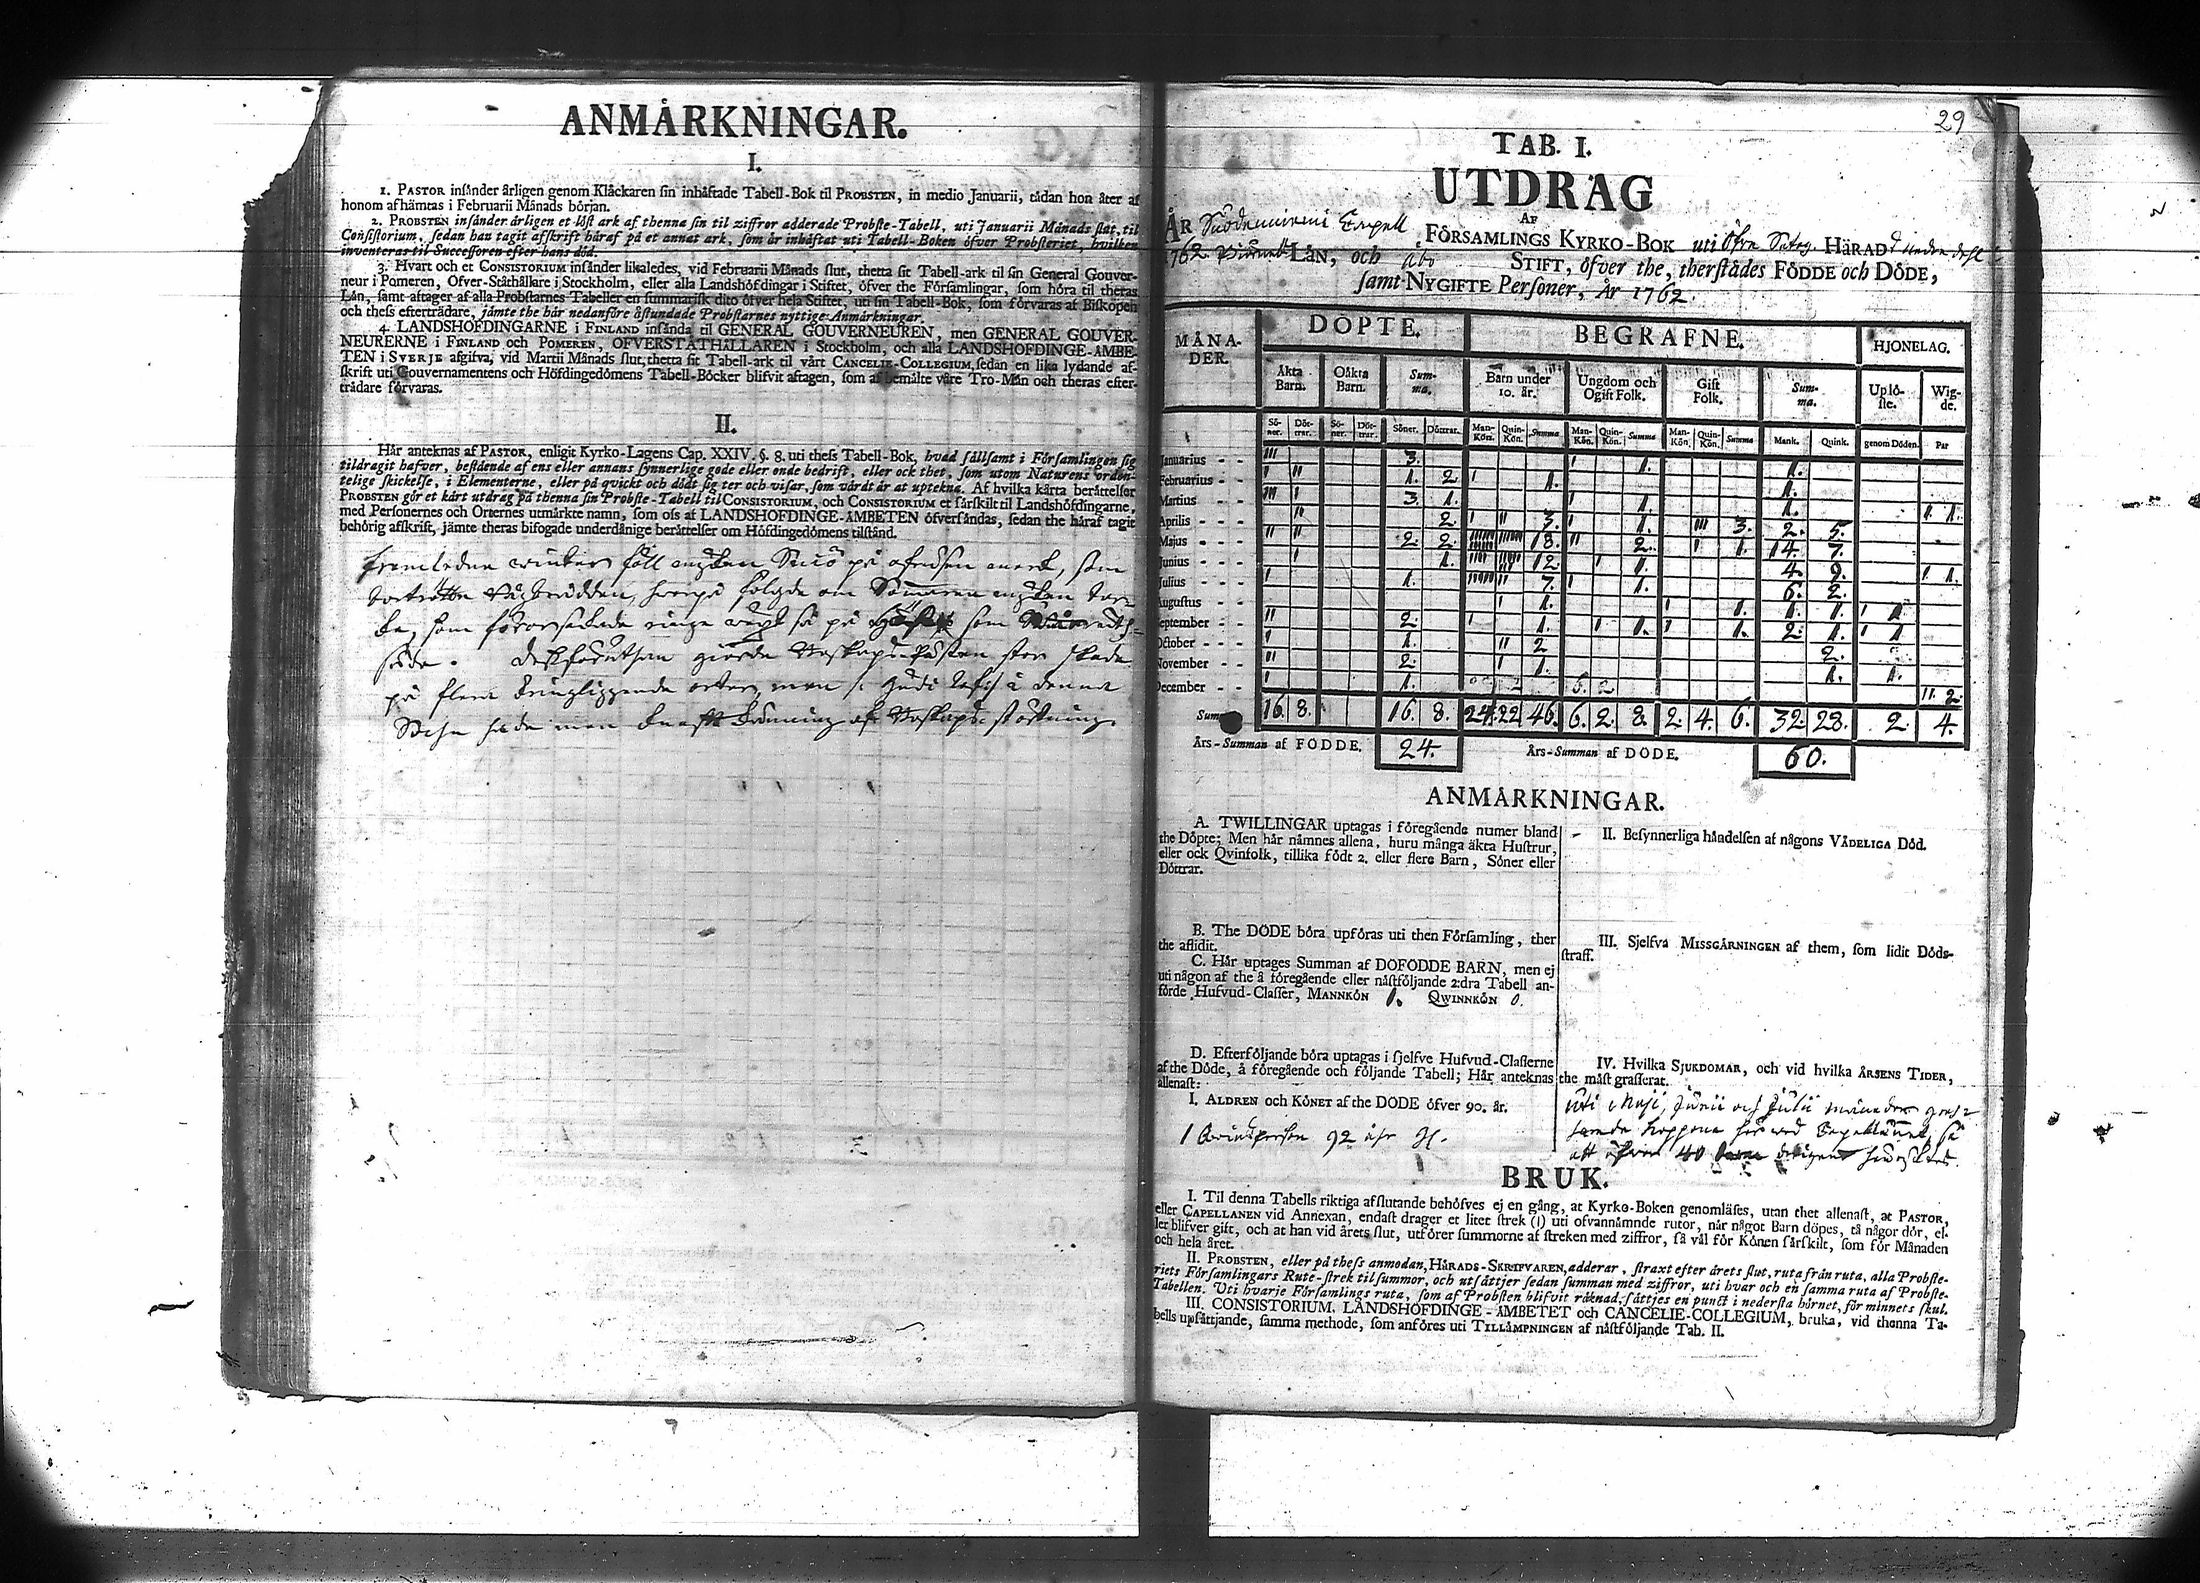 ANMÄRKNINGAR.
I.
1. PASTOR insänder årligen genom Klåckaren sin inhäftade Tabell-Bok til PROBSTEN, in medio Januarii, tådan hon åter af
honom afhämtas i Februarii Månads början.
2. PROBSTEN insänder årligen et löst ark af thenna sin til ziffror adderade Probste-Tabell, uti Januarii Månads slut, til
Consistorium, sedan han tagit afskrift häraf på et annat ark, som är inhäftat uti Tabell-Boken öfver Probsteriet, hvilken
inventeras til Successoren efter hans död.
3. Hvart och et CONSISTORIUM insänder likaledes, vid Februarii Månads slut, thetta sit Tabell-ark til sin General Gouver-
neur i Pomeren, Öfver-Ståthållare i Stockholm, eller alla Landshöfdingar i Stiftet, öfver the Församlingar, som höra til theras
Län, samt aftager af alla Probstarnes Tabeller en summarisk dito öfver hela Stiftet, uti sin Tabell-Bok, som förvaras af Biskopen
och thess efterträdare, jämte the här nedanföre åstundade Probstarnes nyttige Anmärkningar.
4. LANDSHÖFDINGARNE i FINLAND insända til GENERAL GOUVERNEUREN, men GENERAL GOUVER-
NEURERNE i FINLAND och POMEREN, ÖFVERSTÅTHÅLLAREN i Stockholm, och alla LANDSHÖFDINGE-ÄMBE-
TEN i SVERJE afgifva, vid Martii Månads slut, thetta sit Tabell-ark til vårt CANCELIE-COLLEGIUM, sedan en lika lydande af-
skrift uti Gouvernamentens och Höfdingedömens Tabell-Böcker blifvit aftagen, som af bemälte våre Tro-Män och theras efter-
trädare förvaras.
II.
Här anteknas af PASTOR, enligit Kyrko-Lagens Cap. XXIV. §. 8. uti thess Tabell-Bok, hvad sällsamt i Församlingen sig
tildragit hafver, bestående af ens eller annans synnerlige gode eller onde bedrift, eller ock thet, som utom Naturens orden-
telige skickelse, i Elementerne, eller på qvickt och dödt sig ter och visar, som värdt är at uptekna. Af hvilka kårta berättelser
PROBSTEN gör et kårt utdrag på thenna sin Probste-Tabell til CONSISTORIUM, och CONSISTORIUM et särskilt til Landshöfdingarne,
med Personernes och Orternes utmärkte namn, som oss af LANDSHÖFDINGE-ÄMBETEN öfversändas, sedan the häraf tagit
behörig afskrift, jämte theras bifogade underdånige berättelser om Höfdingedömens tilstånd.
winter föll mycken Snö på ofrusen mark, som
på följde om Sommaren mycken tor-
ka, som förorsakade ringa växt så på som
Dessförutan giorde Boskaps-Pästen stor skada
på flera kringliggande orter, men
29
TAB. I.
UTDRAG
AF
ÅR FÖRSAMLINGS KYRKO-BOK uti Öfre HÄRAD
1762 LÄN, och Åbo STIFT, öfver the, therstädes FÖDDE och DÖDE,
samt NYGIFTE Personer, År 1762.
MÅNA-
DER.
DÖPTE. BEGRAFNE. HJONELAG.
Äkta Barn. Oäkta Barn. Summa. Barn under 10. år. Ungdom och Ogift Folk. Gift Folk. Summa. Uplö-ste. Wig-de.
Sö-ner. Döt-trar. Sö-ner. Döt-trar. Söner. Döttrar. Man-Kön. Quin-Kön. Summa Man-Kön. Quin-Kön. Summa Man-Kön. Quin-Kön. Summa Mank. Quink. genom Döden. Par
Januarius - - 3. 1. 1.
Februarius - - 1. 2 1. 1.
Martius - - 3. 1. 1. 1. 1.
Aprilis - - 2. 3. 1. 3. 2. 5.
Majus - - 2. 2. 18. 2. 1. 14. 7.
Junius - - 1. 12. 1. 4. 9. 1.
Julius - - 1. 7. 1. 6. 2.
Augustus - - 1. 1. 1. 1. 1
September - - 2. 1. 1. 1. 2. 1. 1
October - - 1. 2 2.
November - - 2. 1. 1. 1.
December - - 1. 2.
Summa 16. 8. 16. 8. 24. 22 46. 6. 2. 8. 2. 4. 6. 32. 28. 2. 4.
Års-Summan af FÖDDE. 24. Års-Summan af DÖDE. 60.
ANMÄRKNINGAR.
A. TWILLINGAR uptagas i föregående numer bland
the Döpte; Men här nämnes allena, huru många äkta Hustrur,
eller ock Qvinfolk, tillika födt 2. eller flere Barn, Söner eller
Döttrar.
B. The DÖDE böra upföras uti then Församling, ther
the aflidit.
C. Här uptages Summan af DÖFÖDDE BARN, men ej
uti någon af the å föregående eller nästföljande 2:dra Tabell an-
förde Hufvud-Classer, MANNKÖN 1. QWINNKÖN 0.
D. Efterföljande böra uptagas i sjelfve Hufvud-Classerne
af the Döde, å föregående och följande Tabell; Här anteknas
allenast:
I. ÅLDREN och KÖNET af the DÖDE öfver 90. år.
1 Qwinsperson 92 åhr
II. Besynnerliga händelsen af någons VÅDELIGA Död.
III. Sjelfva MISSGÄRNINGEN af them, som lidit Döds-
straff.
IV. Hvilka SJUKDOMAR, och vid hvilka ÅRSENS TIDER,
the mäst grasserat.
Uti Maji, Junii och Julii månader gras-
serade Koppona här wed Capellet, så
att öfwer 40
BRUK.
I. Til denna Tabells riktiga afslutande behöfves ej en gång, at Kyrko-Boken genomläses, utan thet allenast, at PASTOR,
eller CAPELLANEN vid Annexan, endast drager et litet strek (I) uti ofvannämnde rutor, när något Barn döpes, tå någor dör, el-
ler blifver gift, och at han vid årets slut, utförer summorne af streken med ziffror, så väl för Könen särskilt, som för Månaden
och hela året.
II. PROBSTEN, eller på thess anmodan, HÄRADS-SKRIFVAREN, adderar, straxt efter årets slut, ruta från ruta, alla Probste-
riets Församlingars Rute-strek til summor, och utsättjer sedan summan med ziffror, uti hvar och en samma ruta af Probste-
Tabellen. Uti hvarje Församlings ruta, som af Probsten blifvit räknad, sättjes en punct i nedersta hörnet, för minnets skul.
III. CONSISTORIUM, LANDSHÖFDINGE-ÄMBETET och CANCELIE-COLLEGIUM, bruka, vid thenna Ta-
bells upsättjande, samma methode, som anföres uti TILLÄMPNINGEN af nästföljande Tab. II.